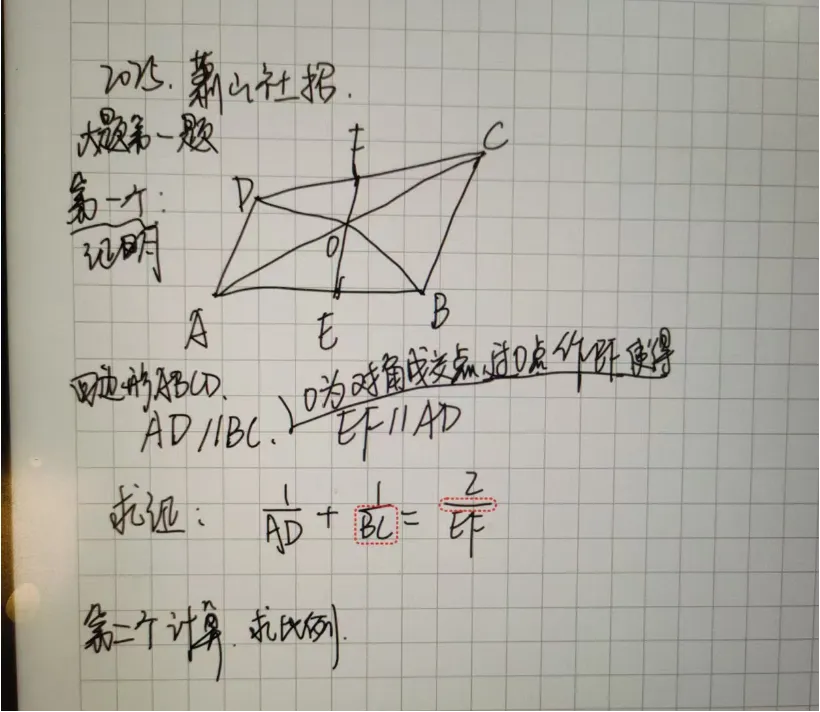 2025.萧山社招.
大题第一题
第一个:
证明
F
C
D
O
A
E
B
四边形ABCD.
O为对角线交点,过O点作EF使得
AD//BC.
EF//AD
求证: 1/AD + 1/BC = 2/EF
第二个计算.求比例.